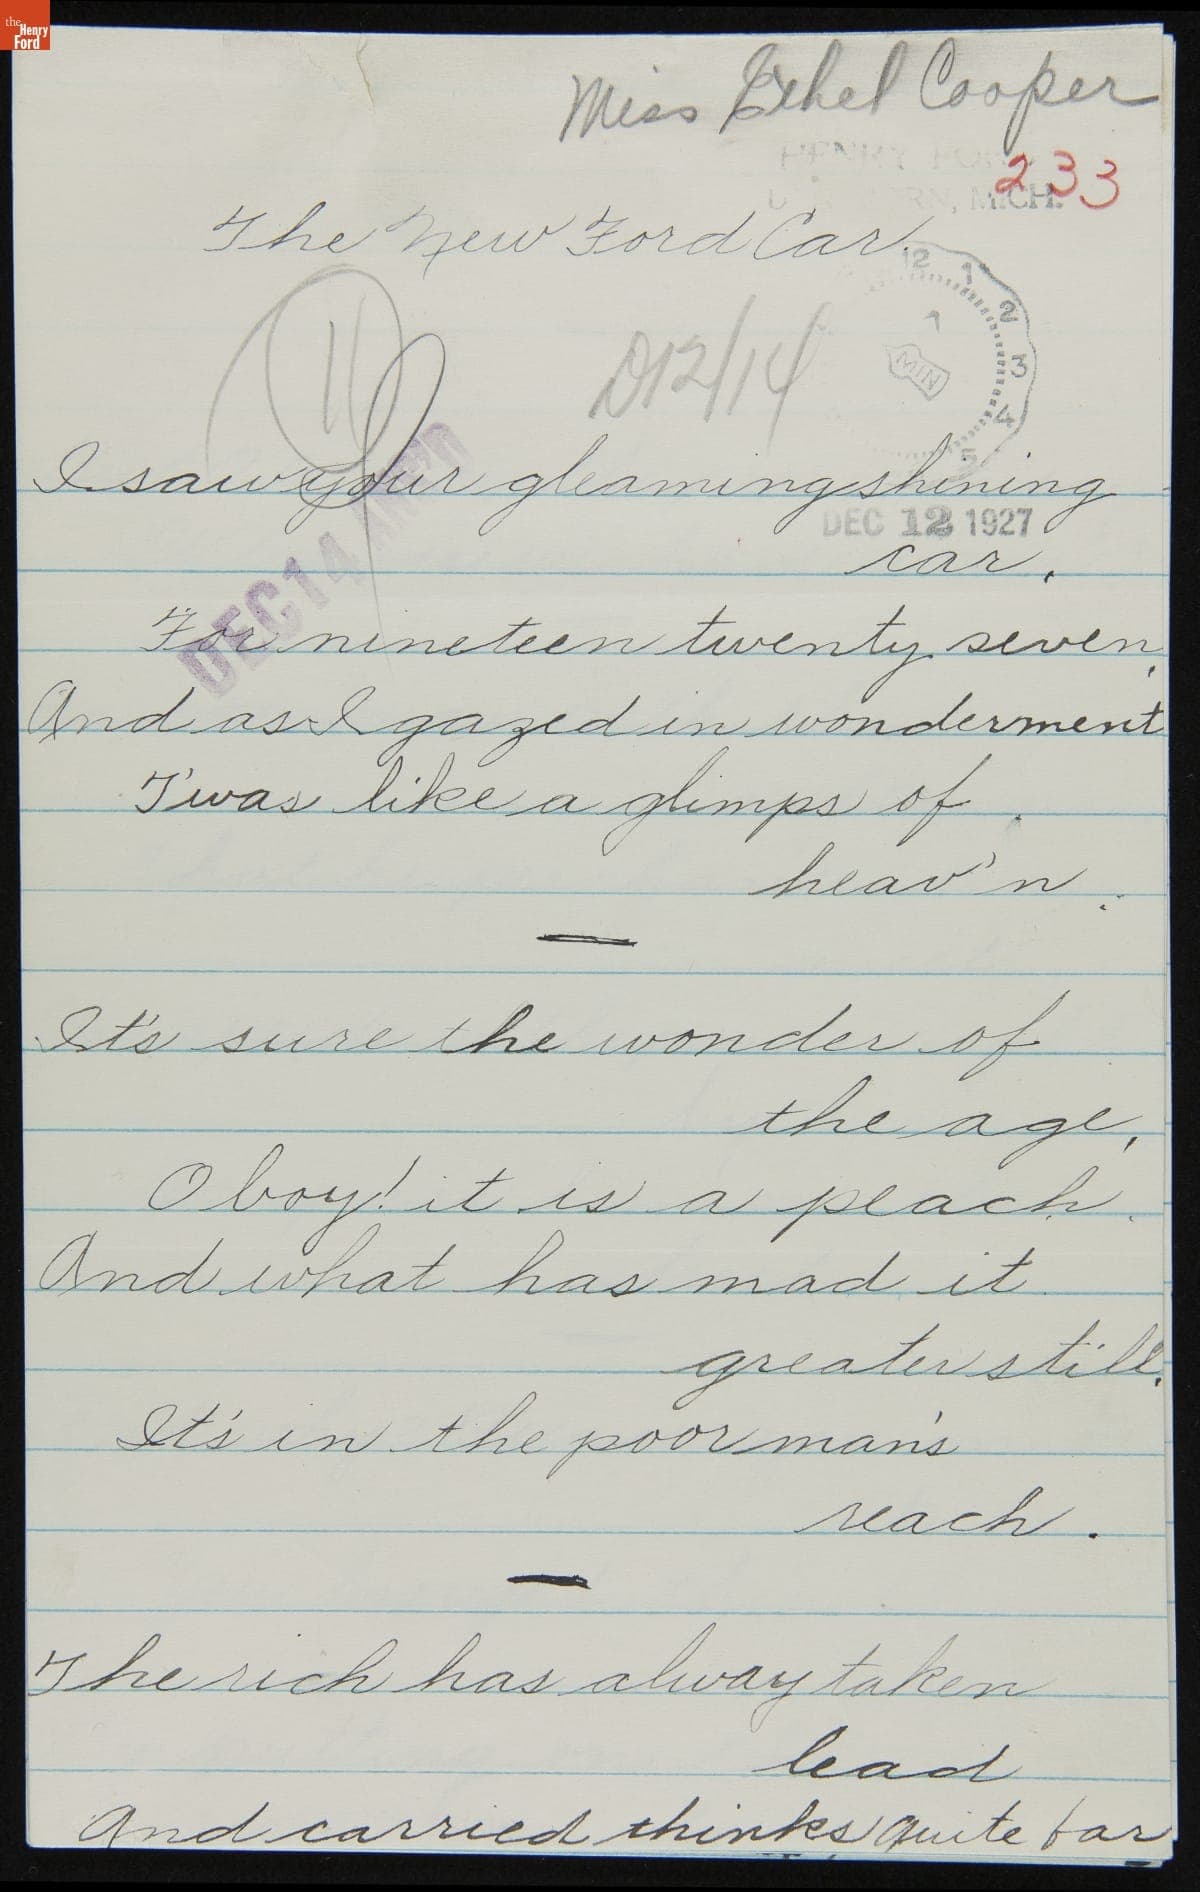 the
Henry
Ford
Miss Ethel Cooper
HENRY FORD
MICH.
233
The New Ford Car.
12 1 2 3 4 5
MIN
11
D12/14
I saw your gleaming shining
DEC 12 1927
car.
DEC 14
For nineteen twenty seven,
And as I gazed in wonderment
T'was like a glimps of
heav'n.
—
It's sure the wonder of
the age,
O boy! it is a peach.
And what has mad it
greater still,
It's in the poor man's
reach.
—
The rich has alway taken
lead
And carried thinks quite far